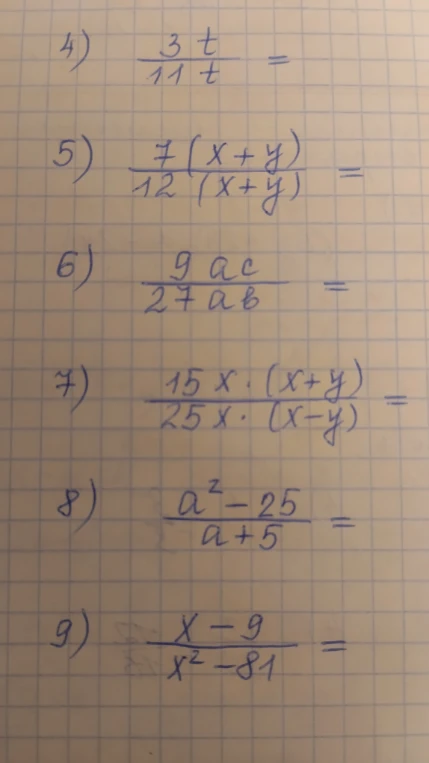 4) 3 t / 11 t =
5) 7 (x + y) / 12 (x + y) =
6) 9 ac / 27 ab =
7) 15 x · (x + y) / 25 x · (x − y) =
8) a² − 25 / a + 5 =
9) x − 9 / x² − 81 =